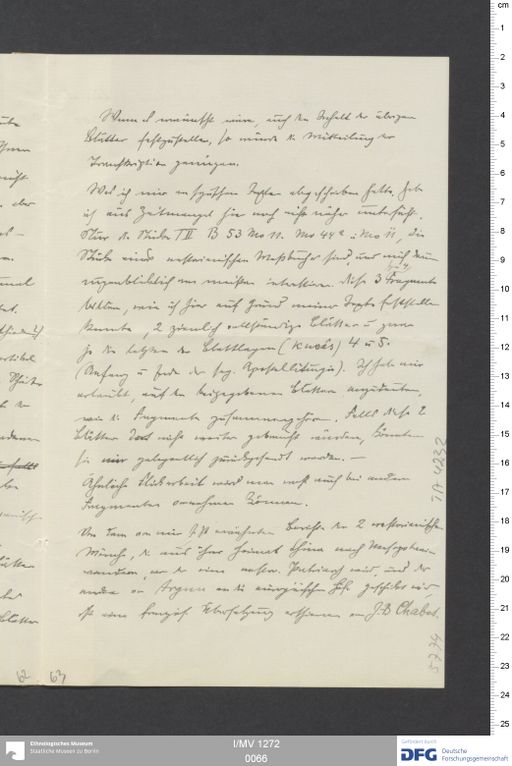 Wenn es erwünscht wäre, auch den Inhalt der übrigen
Blätter festzustellen, so würde die Mitteilung der
Transkription genügen.
Was ich mir an syrischen Texten abgeschrieben hatte, habe
ich aus Zeitmangel hier noch nicht näher untersucht.
Nur die Stücke T II B 53 No 11. No 44a u No 11, die
Stücke eines nestorianischen Messbuches sind und mich
augenblicklich am meisten interessieren. Diese 3 Fragmente
bilden, wie ich hier auf Grund meiner Texte feststellen
konnte, 2 ziemlich vollständige Blätter u zwar
je die letzten der Blattlagen (kurrās) 4 u 5.
(Anfang u Ende der sog. Apostelliturgie). Ich habe mir
erlaubt, auf den beigegebenen Blättern anzudeuten,
wie die Fragmente zusammengehören. Falls diese 2
Blätter dort nicht weiter gebraucht würden, könnten
sie mir gelegentlich zurückgesandt werden. —
Ähnliche Flickarbeit wird man wohl auch bei andern
Fragmenten vornehmen können.
Von dem von mir erwähnten Bericht der 2 nestorianischen
Mönche, die aus ihrer Heimat China nach Mesopotamien
wandern, wo der eine nestor. Patriarch wird, und der
andre von Argun an die europäischen Höfe geschickt wird,
ist eine französ. Übersetzung erschienen von J-B Chabot.
TA 4232
5774
62 63
cm
1
2
3
4
5
6
7
8
9
10
11
12
13
14
15
16
17
18
19
20
21
22
23
24
25
Ethnologisches Museum
Staatliche Museen zu Berlin
I/MV 1272
0066
Gefördert durch
DFG Deutsche
Forschungsgemeinschaft